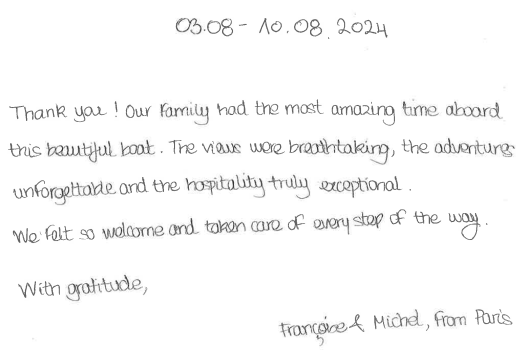 03.08 - 10.08.2024
Thank you! Our family had the most amazing time aboard
this beautiful boat. The views were breathtaking, the adventures
unforgettable and the hospitality truly exceptional.
We felt so welcome and taken care of every step of the way.
With gratitude,
Françoise & Michel, from Paris